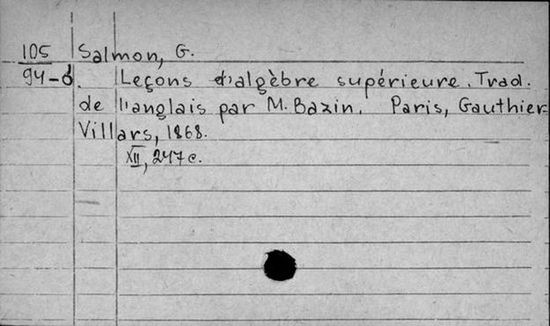 105 Salmon, G.
94-б. Leçons d'algèbre supérieure. Trad.
de l'anglais par M. Bazin. Paris, Gauthier-
Villars, 1868.
XII, 247 с.